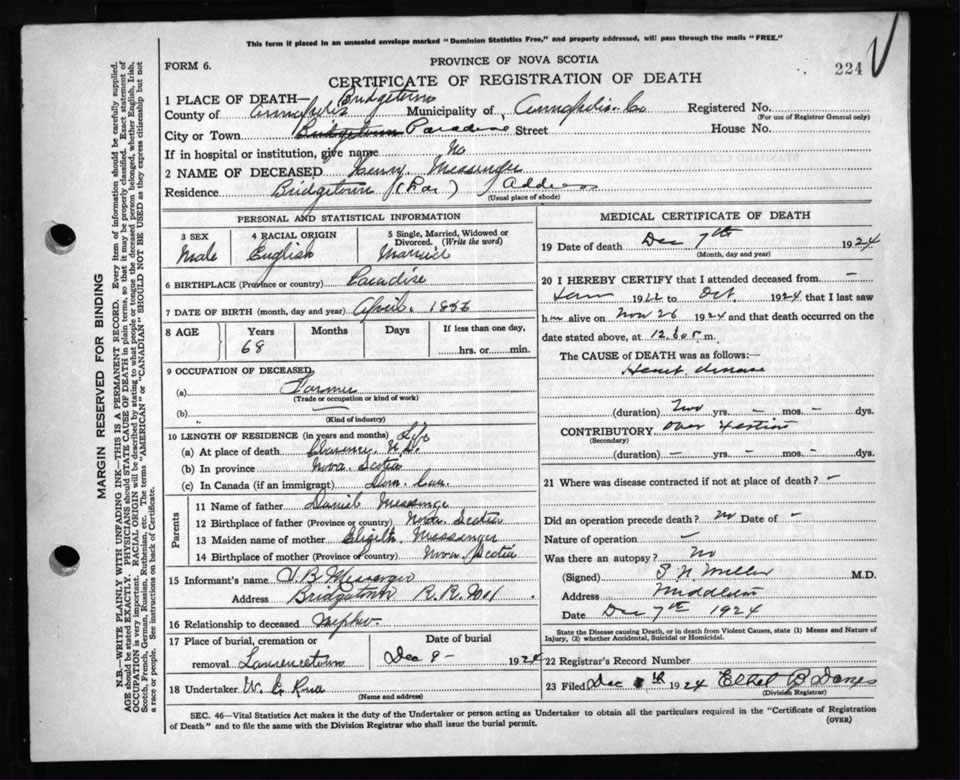 This form if placed in an unsealed envelope marked "Dominion Statistics Free," and properly addressed, will pass through the mails "FREE."
FORM 6.
PROVINCE OF NOVA SCOTIA
224
CERTIFICATE OF REGISTRATION OF DEATH
1 PLACE OF DEATH— Bridgetown
County of Annapolis Municipality of Annapolis Co Registered No.
(For use of Registrar General only)
City or Town Bridgetown Paradise Street House No.
If in hospital or institution, give name No
2 NAME OF DECEASED Henry Messenger
Residence Bridgetown (Par) Address
(Usual place of abode)
PERSONAL AND STATISTICAL INFORMATION
3 SEX 4 RACIAL ORIGIN 5 Single, Married, Widowed or Divorced. (Write the word)
Male English Married
6 BIRTHPLACE (Province or country) Paradise
7 DATE OF BIRTH (month, day and year) April. 1856
8 AGE Years Months Days If less than one day,
68 hrs. or min.
9 OCCUPATION OF DECEASED
(a) Farmer
(Trade or occupation or kind of work)
(b) —
(Kind of industry)
10 LENGTH OF RESIDENCE (in years and months) Life
(a) At place of death Clarence N.S.
(b) In province Nova Scotia
(c) In Canada (if an immigrant) Dom. Can.
Parents
11 Name of father Daniel Messenger
12 Birthplace of father (Province or country) Nova Scotia
13 Maiden name of mother Messenger
14 Birthplace of mother (Province or country) Nova Scotia
15 Informant's name J. B. Messenger
Address Bridgetown R. R. No 1
16 Relationship to deceased Nephew
17 Place of burial, cremation or Date of burial
removal Lawrencetown Dec 9 - 1924
18 Undertaker W. E.
(Name and address)
MEDICAL CERTIFICATE OF DEATH
19 Date of death Dec 7th 1924
(Month, day and year)
20 I HEREBY CERTIFY that I attended deceased from —
1922 to Oct 1924 that I last saw
him alive on Nov 26 1924 and that death occurred on the
date stated above, at 12.30 P. m.
The CAUSE of DEATH was as follows:—
Heart disease
(duration) Two yrs. — mos. — dys.
CONTRIBUTORY Over
(Secondary)
(duration) — yrs. — mos. — dys.
21 Where was disease contracted if not at place of death? —
Did an operation precede death? No Date of —
Nature of operation —
Was there an autopsy? No
(Signed) S. N. Miller M.D.
Address Middleton
Date Dec 7th 1924
State the Disease causing Death, or in death from Violent Causes, state (1) Means and Nature of
Injury, (2) whether Accidental, Suicidal or Homicidal.
22 Registrar's Record Number
23 Filed Dec 8th 1924 Ethel B
(Division Registrar)
SEC. 46—Vital Statistics Act makes it the duty of the Undertaker or person acting as Undertaker to obtain all the particulars required in the "Certificate of Registration
of Death" and to file the same with the Division Registrar who shall issue the burial permit.
(OVER)
MARGIN RESERVED FOR BINDING
N.B.—WRITE PLAINLY WITH UNFADING INK—THIS IS A PERMANENT RECORD. Every item of information should be carefully supplied.
AGE should be stated EXACTLY. PHYSICIANS should STATE CAUSE OF DEATH in plain terms, so that it may be properly classified. Exact statement of
OCCUPATION is very important. RACIAL ORIGIN will be described by stating to what people or tongue the deceased person belonged, whether English, Irish,
Scotch, French, German, Russian, Ruthenian, etc. The terms "AMERICAN" or "CANADIAN" SHOULD NOT BE USED as they express citizenship but not
a race or people. See instructions on back of Certificate.